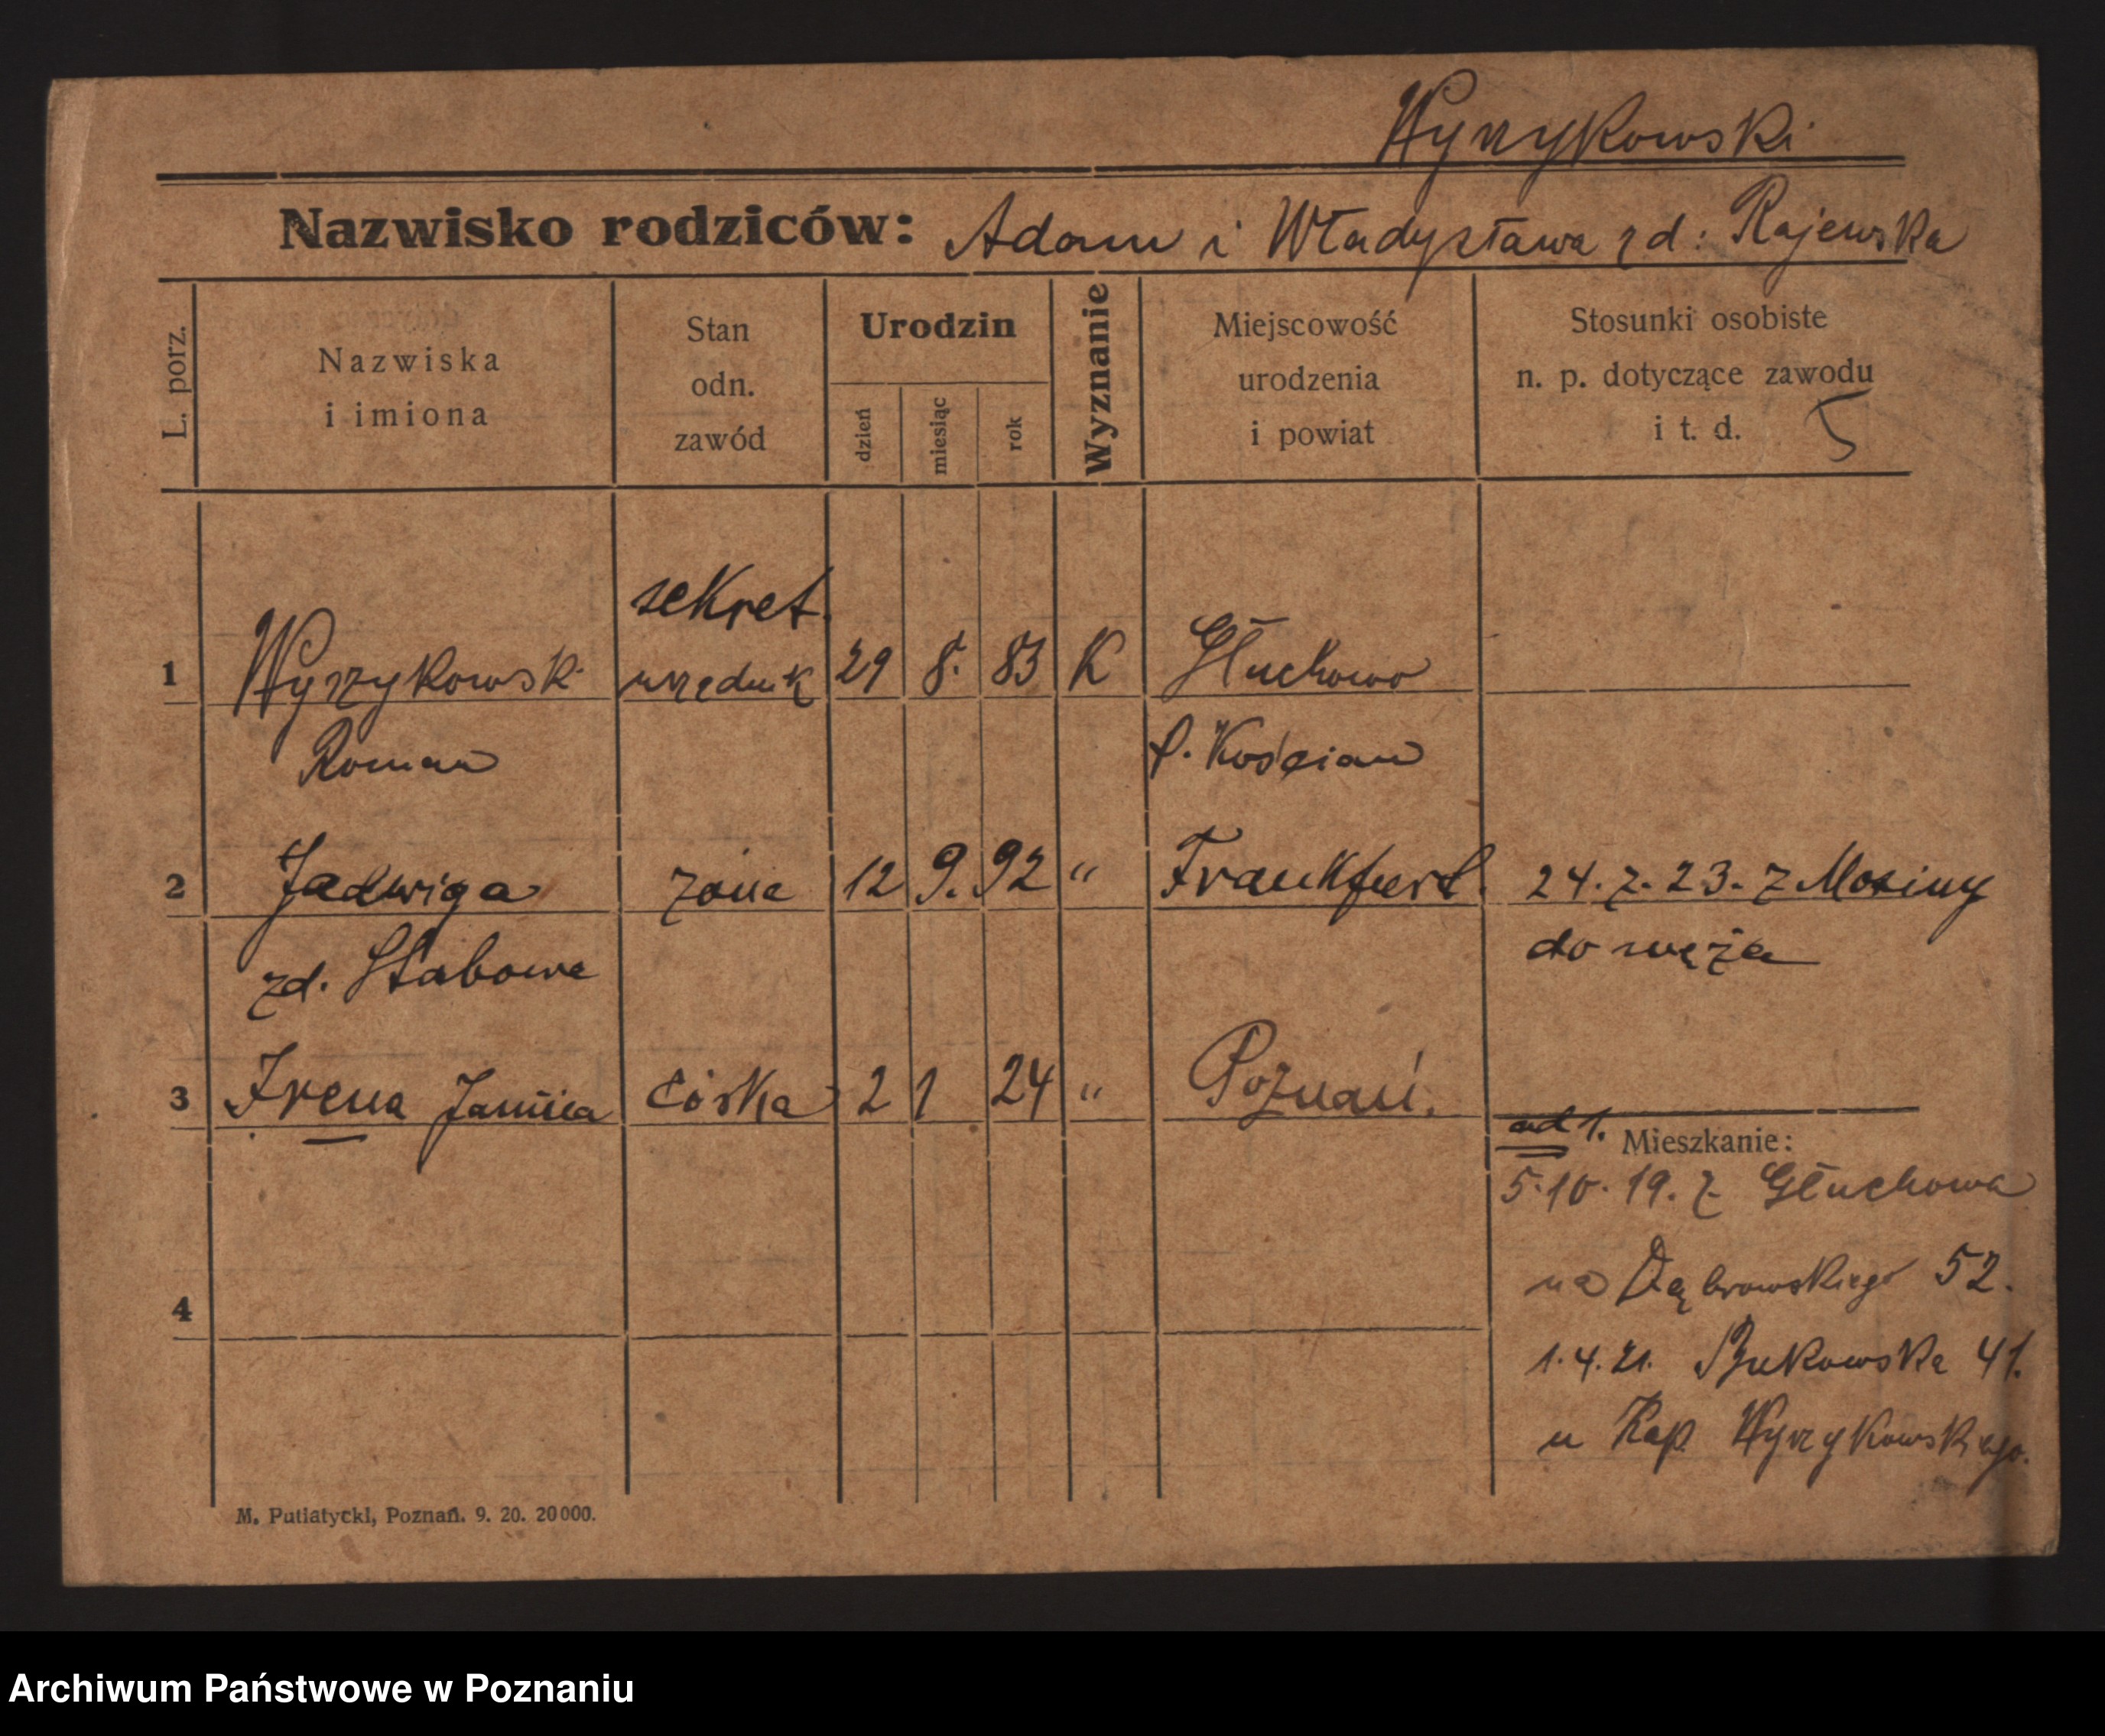 Wyrzykowski
Nazwisko rodziców: Adam i Władysława zd: Rajewska
L. porz.
Nazwiska
i imiona
Stan
odn.
zawód
Urodzin
dzień
miesiąc
rok
Wyznanie
Miejscowość
urodzenia
i powiat
Stosunki osobiste
n. p. dotyczące zawodu
i t. d.
5
sekret.
1 Wyrzykowski urzędnik 29 8. 83 K Głuchowo
Roman p. Kościan
2 Jadwiga żona 12 9. 92 " Frankfurt. 24. 7. 23. z Mosiny
do męża
zd. Stabowa
3 Irena Janina córka 2 1 24 " Poznań.
ad 1. Mieszkanie:
5.10.19. z Głuchowa
na Dąbrowskiego 52.
4
1.4.21. Bukowska 41.
u Kap. Wyrzykowskiego.
M. Putiatycki, Poznań. 9. 20. 20000.
Archiwum Państwowe w Poznaniu